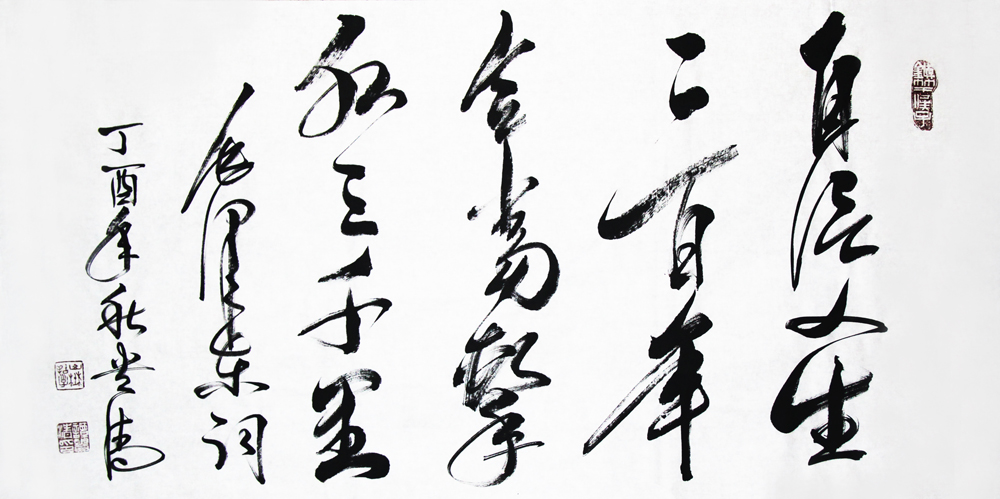 自信人生
二百年
会當擊
水三千里
毛泽东词
丁酉年秋